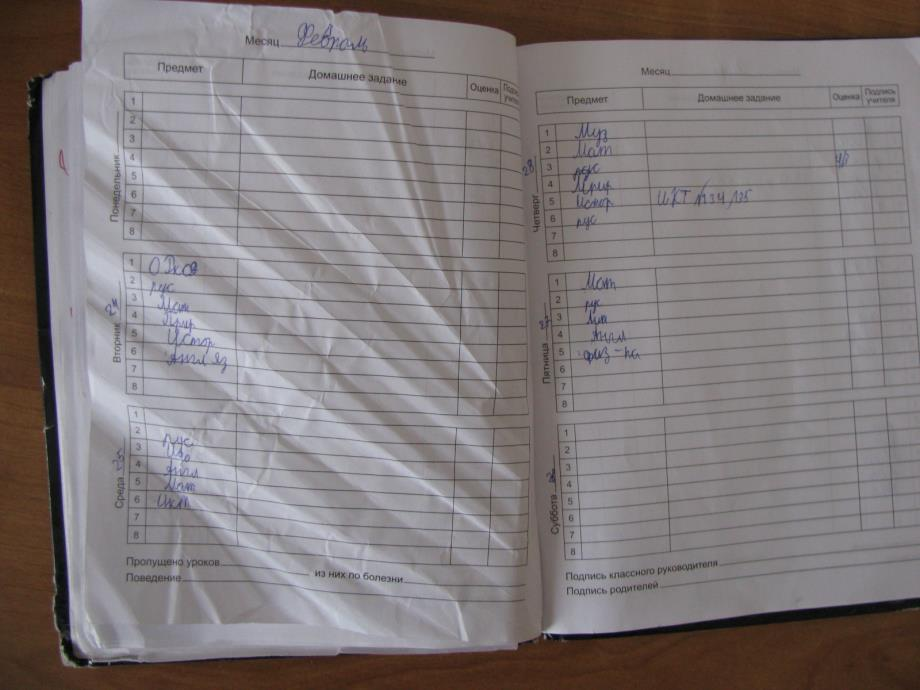 Месяц Февраль
Предмет Домашнее задание Оценка Подпись учителя
Понедельник
1
2
3
4
5
6
7
8
Вторник 24
1 ОДКО
2 рус
3 Мат
4 Прир
5 Истор
6 Англ яз
7
8
Среда 25
1
2 рус
3 Изо
4 Англ
5 Мат
6 Икт
7
8
Пропущено уроков из них по болезни
Поведение
Месяц
Предмет Домашнее задание Оценка Подпись учителя
Четверг
1 Муз
2 Мат
3 рус
4 Прир
5 Истор ИКТ
6 рус
7
8
Пятница 27
1 Мат
2 рус
3 Лит
4 Англ
5 физ-ра
6
7
8
Суббота
1
2
3
4
5
6
7
8
Подпись классного руководителя
Подпись родителей